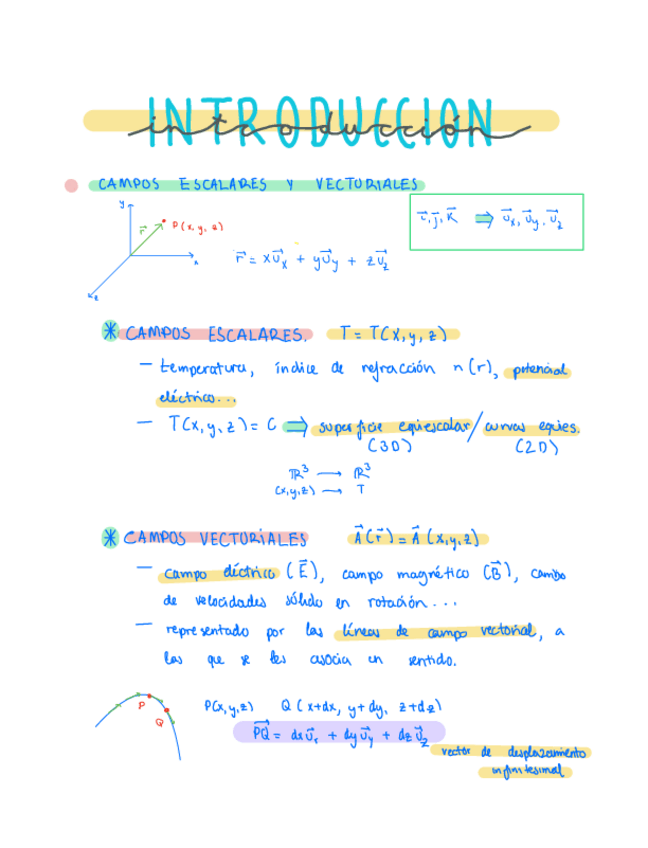 INTRODUCCION
introducción
CAMPOS ESCALARES Y VECTORIALES
y
r⃗
P(x, y, z)
x
z
i⃗, j⃗, k⃗ ⇒ u⃗x, u⃗y, u⃗z
r⃗ = xu⃗x + yu⃗y + zu⃗z
* CAMPOS ESCALARES. T = T(x, y, z)
— temperatura, índice de refracción n(r), potencial
eléctrico...
— T(x, y, z) = C ⇒ superficie equiescalar / curvas equies.
(3D) (2D)
ℝ³ → ℝ³
(x,y,z) → T
* CAMPOS VECTORIALES A⃗(r⃗) = A⃗(x,y,z)
— campo eléctrico (E⃗), campo magnético (B⃗), cambo
de velocidades sólido en rotación...
— representado por las líneas de campo vectorial, a
las que se les asocia un sentido.
P
Q
P(x,y,z) Q(x+dx, y+dy, z+dz)
PQ⃗ = dxu⃗x + dyu⃗y + dzu⃗z
vector de desplazamiento
infinitesimal